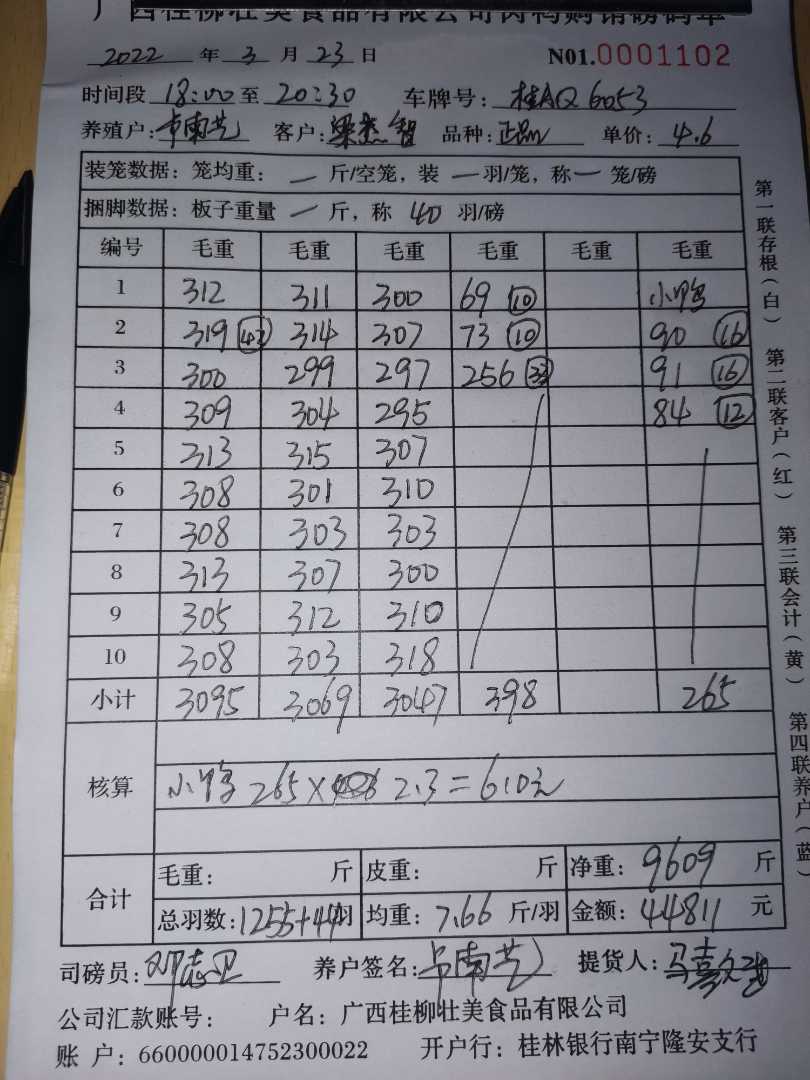 广西桂柳壮美食品有限公司肉鸭购销磅码单
2022 年 3 月 23 日 N01.0001102
时间段 18:00 至 20:30 车牌号: 桂AQ6053
养殖户: 卡南艺 客户: 梁杰智 品种: 正品 单价: 4.6
装笼数据: 笼均重: — 斤/空笼, 装 — 羽/笼, 称 — 笼/磅
捆脚数据: 板子重量 — 斤, 称 40 羽/磅
编号 毛重 毛重 毛重 毛重 毛重 毛重
1 312 311 300 69 (10) 小鸭
2 319 (42) 314 307 73 (10) 90 (16)
3 300 299 297 256 91 (16)
4 309 304 295 84 (12)
5 313 315 307
6 308 301 310
7 308 303 303
8 313 307 300
9 305 312 310
10 308 303 318
小计 3095 3069 3047 398 265
核算 小鸭 265× 2.3=610元
合计 毛重: 斤 皮重: 斤 净重: 9609 斤
总羽数: 1255+44羽 均重: 7.66 斤/羽 金额: 44811 元
司磅员: 邓志卫 养户签名: 卡南艺 提货人: 马喜
公司汇款账号: 户名: 广西桂柳壮美食品有限公司
账 户: 660000014752300022 开户行: 桂林银行南宁隆安支行
第一联存根(白) 第二联客户(红) 第三联会计(黄) 第四联养户(蓝)